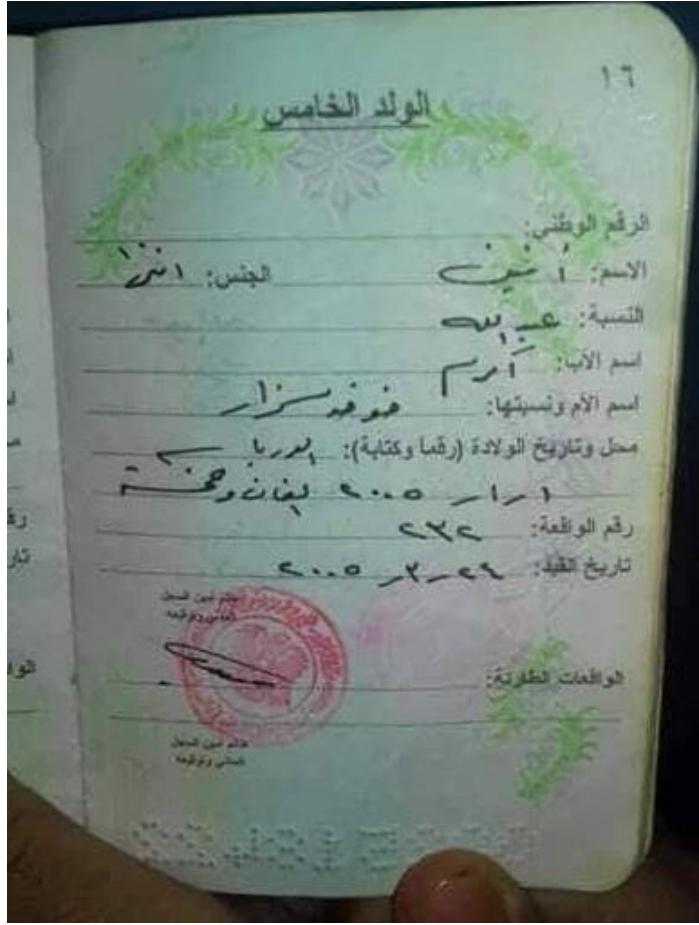 ١٦
الولد الخامس
الرقم الوطني:
الاسم: أفين الجنس: انثى
النسبة: عبد الله
اسم الأب: اكرم
اسم الأم ونسبتها:
محل وتاريخ الولادة (رقماً وكتابة):
١ ر ١ ر ٢٠٠٥ الفان وخمسة
رقم الواقعة: ٢٣٢
تاريخ القيد: ٢٤ ر ٣ ر ٢٠٠٥
خاتم أمين السجل
المدني وتوقيعه
الواقعات الطارئة:
خاتم أمين السجل
المدني وتوقيعه